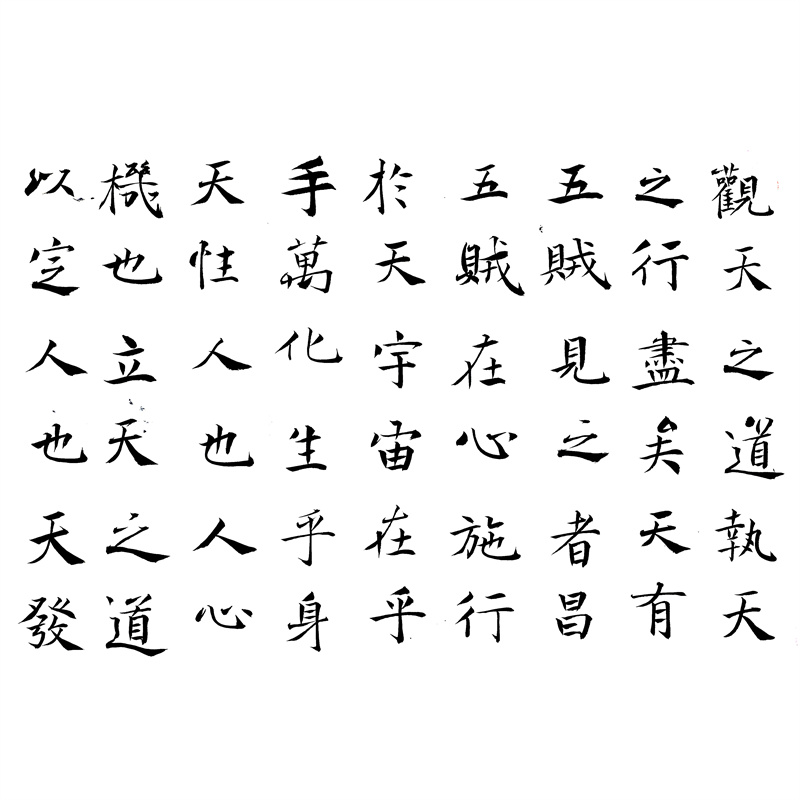 觀天之道執天
之行盡矣天有
五賊見之者昌
五賊在心施行
於天宇宙在乎
手萬化生乎身
天性人也人心
機也立天之道
以定人也天發